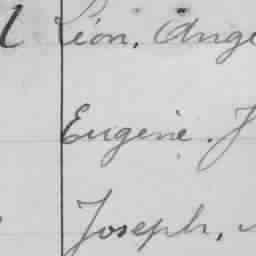 Léon, Ange
Eugène. J
Joseph,